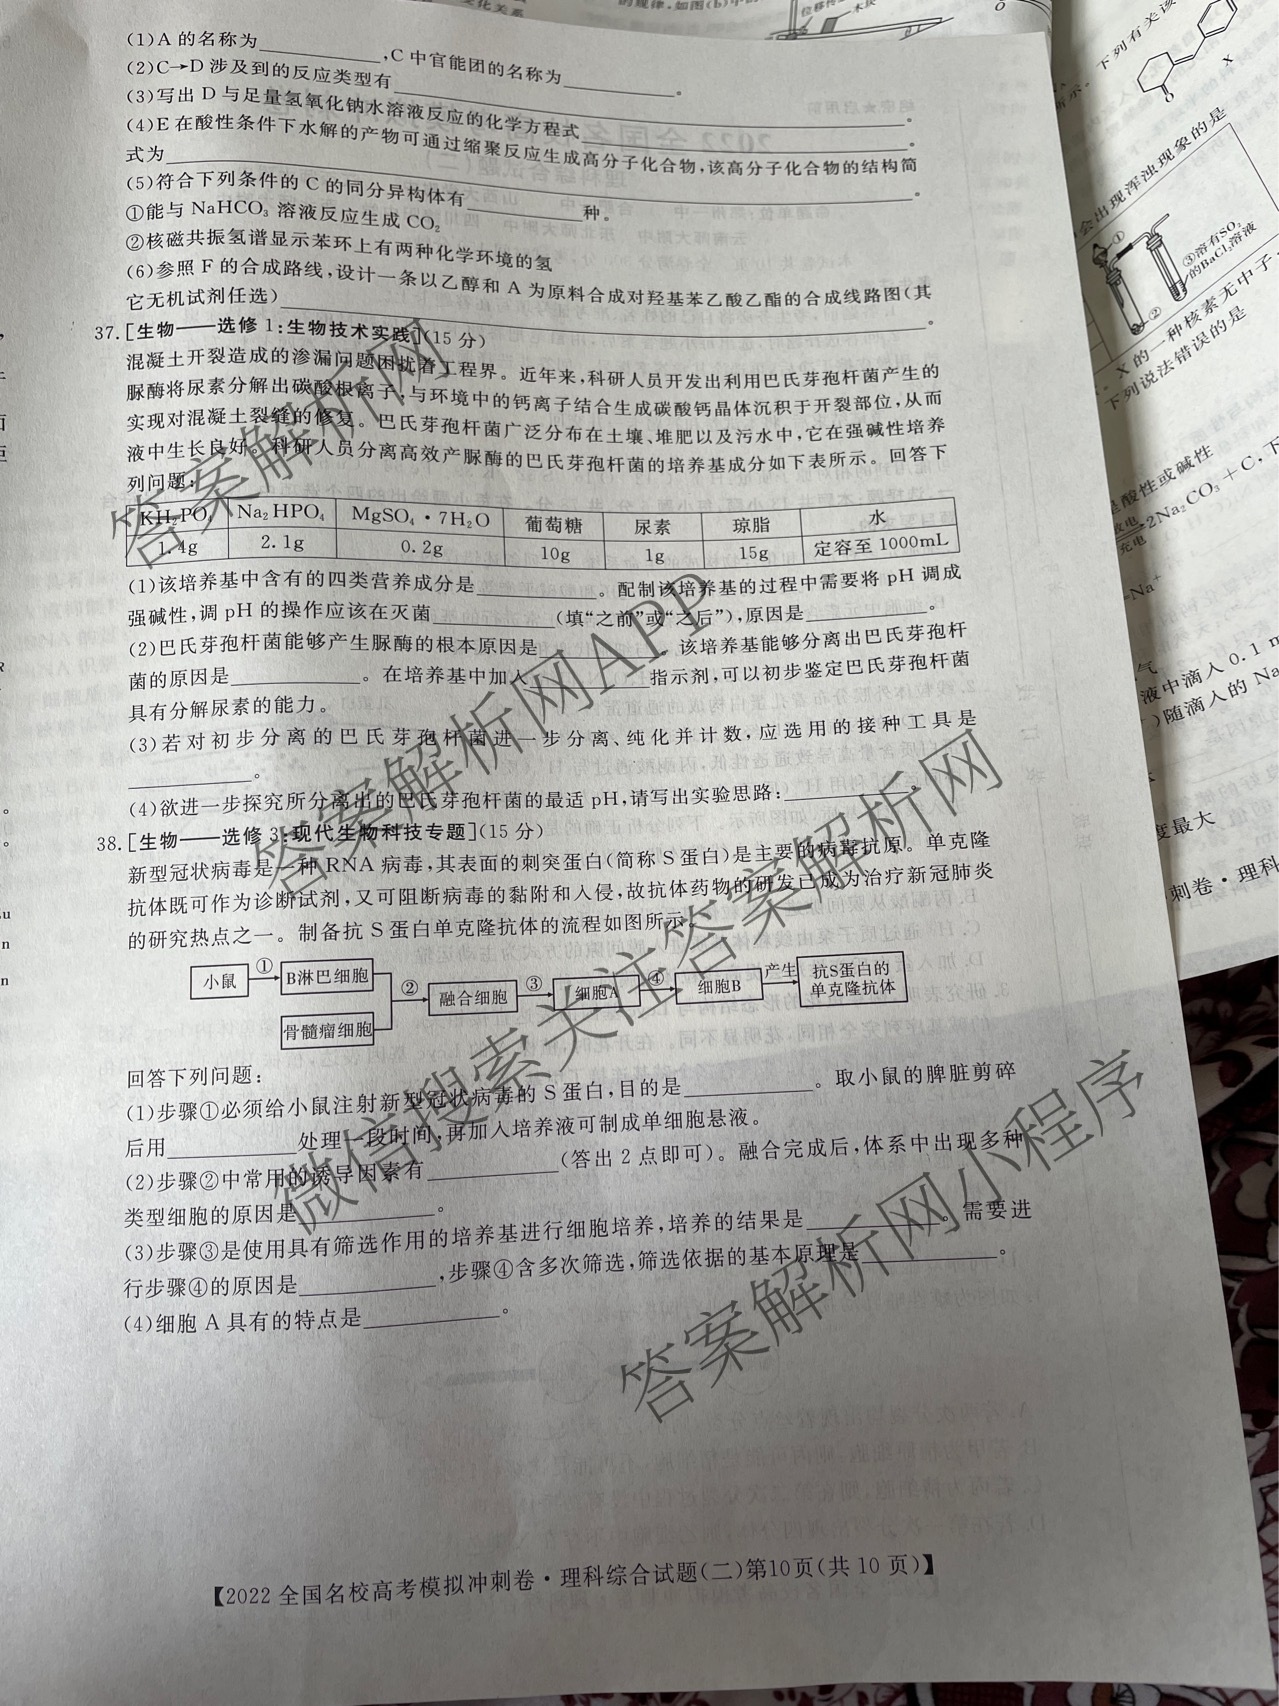 (1)A 的名称为________,C 中官能团的名称为________。
(2)C→D 涉及到的反应类型有________。
(3)写出 D 与足量氢氧化钠水溶液反应的化学方程式________。
(4)E 在酸性条件下水解的产物可通过缩聚反应生成高分子化合物,该高分子化合物的结构简
式为________。
(5)符合下列条件的 C 的同分异构体有________种。
①能与 NaHCO₃ 溶液反应生成 CO₂
②核磁共振氢谱显示苯环上有两种化学环境的氢
(6)参照 F 的合成路线,设计一条以乙醇和 A 为原料合成对羟基苯乙酸乙酯的合成线路图(其
它无机试剂任选)________。
37.[生物——选修 1:生物技术实践](15 分)
混凝土开裂造成的渗漏问题困扰着工程界。近年来,科研人员开发出利用巴氏芽孢杆菌产生的
脲酶将尿素分解出碳酸根离子,与环境中的钙离子结合生成碳酸钙晶体沉积于开裂部位,从而
实现对混凝土裂缝的修复。巴氏芽孢杆菌广泛分布在土壤、堆肥以及污水中,它在强碱性培养
液中生长良好。科研人员分离高效产脲酶的巴氏芽孢杆菌的培养基成分如下表所示。回答下
列问题:
KH₂PO₄ Na₂HPO₄ MgSO₄·7H₂O 葡萄糖 尿素 琼脂 水
1.4g 2.1g 0.2g 10g 1g 15g 定容至 1000mL
(1)该培养基中含有的四类营养成分是________。配制该培养基的过程中需要将 pH 调成
强碱性,调 pH 的操作应该在灭菌________(填“之前”或“之后”),原因是________。
(2)巴氏芽孢杆菌能够产生脲酶的根本原因是________。该培养基能够分离出巴氏芽孢杆
菌的原因是________。在培养基中加入________指示剂,可以初步鉴定巴氏芽孢杆菌
具有分解尿素的能力。
(3)若对初步分离的巴氏芽孢杆菌进一步分离、纯化并计数,应选用的接种工具是
________。
(4)欲进一步探究所分离出的巴氏芽孢杆菌的最适 pH,请写出实验思路:________。
38.[生物——选修 3:现代生物科技专题](15 分)
新型冠状病毒是一种 RNA 病毒,其表面的刺突蛋白(简称 S 蛋白)是主要的病毒抗原。单克隆
抗体既可作为诊断试剂,又可阻断病毒的黏附和入侵,故抗体药物的研发已成为治疗新冠肺炎
的研究热点之一。制备抗 S 蛋白单克隆抗体的流程如图所示。
小鼠 ① B淋巴细胞 ② 融合细胞 ③ 细胞A ④ 细胞B 产生 抗S蛋白的
单克隆抗体
骨髓瘤细胞
回答下列问题:
(1)步骤①必须给小鼠注射新型冠状病毒的 S 蛋白,目的是________。取小鼠的脾脏剪碎
后用________处理一段时间,再加入培养液可制成单细胞悬液。
(2)步骤②中常用的诱导因素有________(答出 2 点即可)。融合完成后,体系中出现多种
类型细胞的原因是________。
(3)步骤③是使用具有筛选作用的培养基进行细胞培养,培养的结果是________。需要进
行步骤④的原因是________,步骤④含多次筛选,筛选依据的基本原理是________。
(4)细胞 A 具有的特点是________。
【2022 全国名校高考模拟冲刺卷·理科综合试题(二)第10页(共 10 页)】
答案解析网
答案解析网APP
微信搜索关注答案解析网
答案解析网小程序
下列有关该
X
会出现浑浊现象的是
①
②
③溶有SO₂
的BaCl₂溶液
X 的一种核素无中子
下列说法错误的是
是酸性或碱性
放电
充电
2Na₂CO₃+C,下
液中滴入 0.1 m
随滴入的 Na
度最大
刺卷·理科